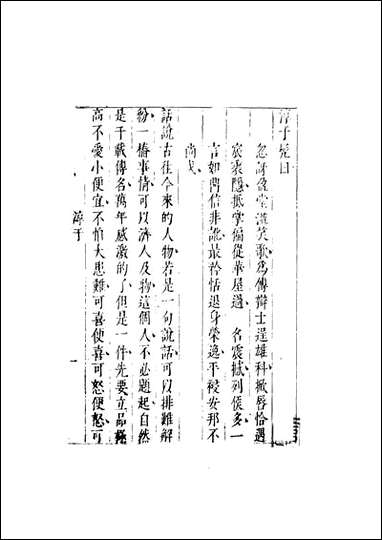 淳于髡目
忽訝盈堂濫笑歌爲傳辯士逞雄科掀唇恰遇
宸衷隱抵掌偏從華屋過 名震撼列侯多一
言如閧信非訛最矜恬退身榮逸平祲安邦不
尚戈
話說古往今來的人物若是一句說話可以排難解
紛一樁事情可以濟人及物這個人不必題起自然
是千載傳名萬年感激的了但是一件先要立品極
高不愛小便宜不怕大患難可喜便喜可怒便怒可
淳于
一